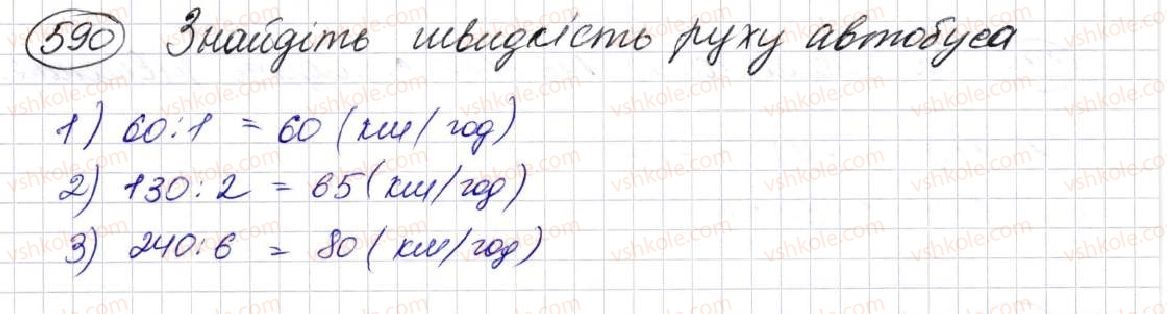 590 Знайдіть швидкість руху автобуса
1) 60:1 = 60 (км/год)
2) 130:2 = 65 (км/год)
3) 240:6 = 80 (км/год)